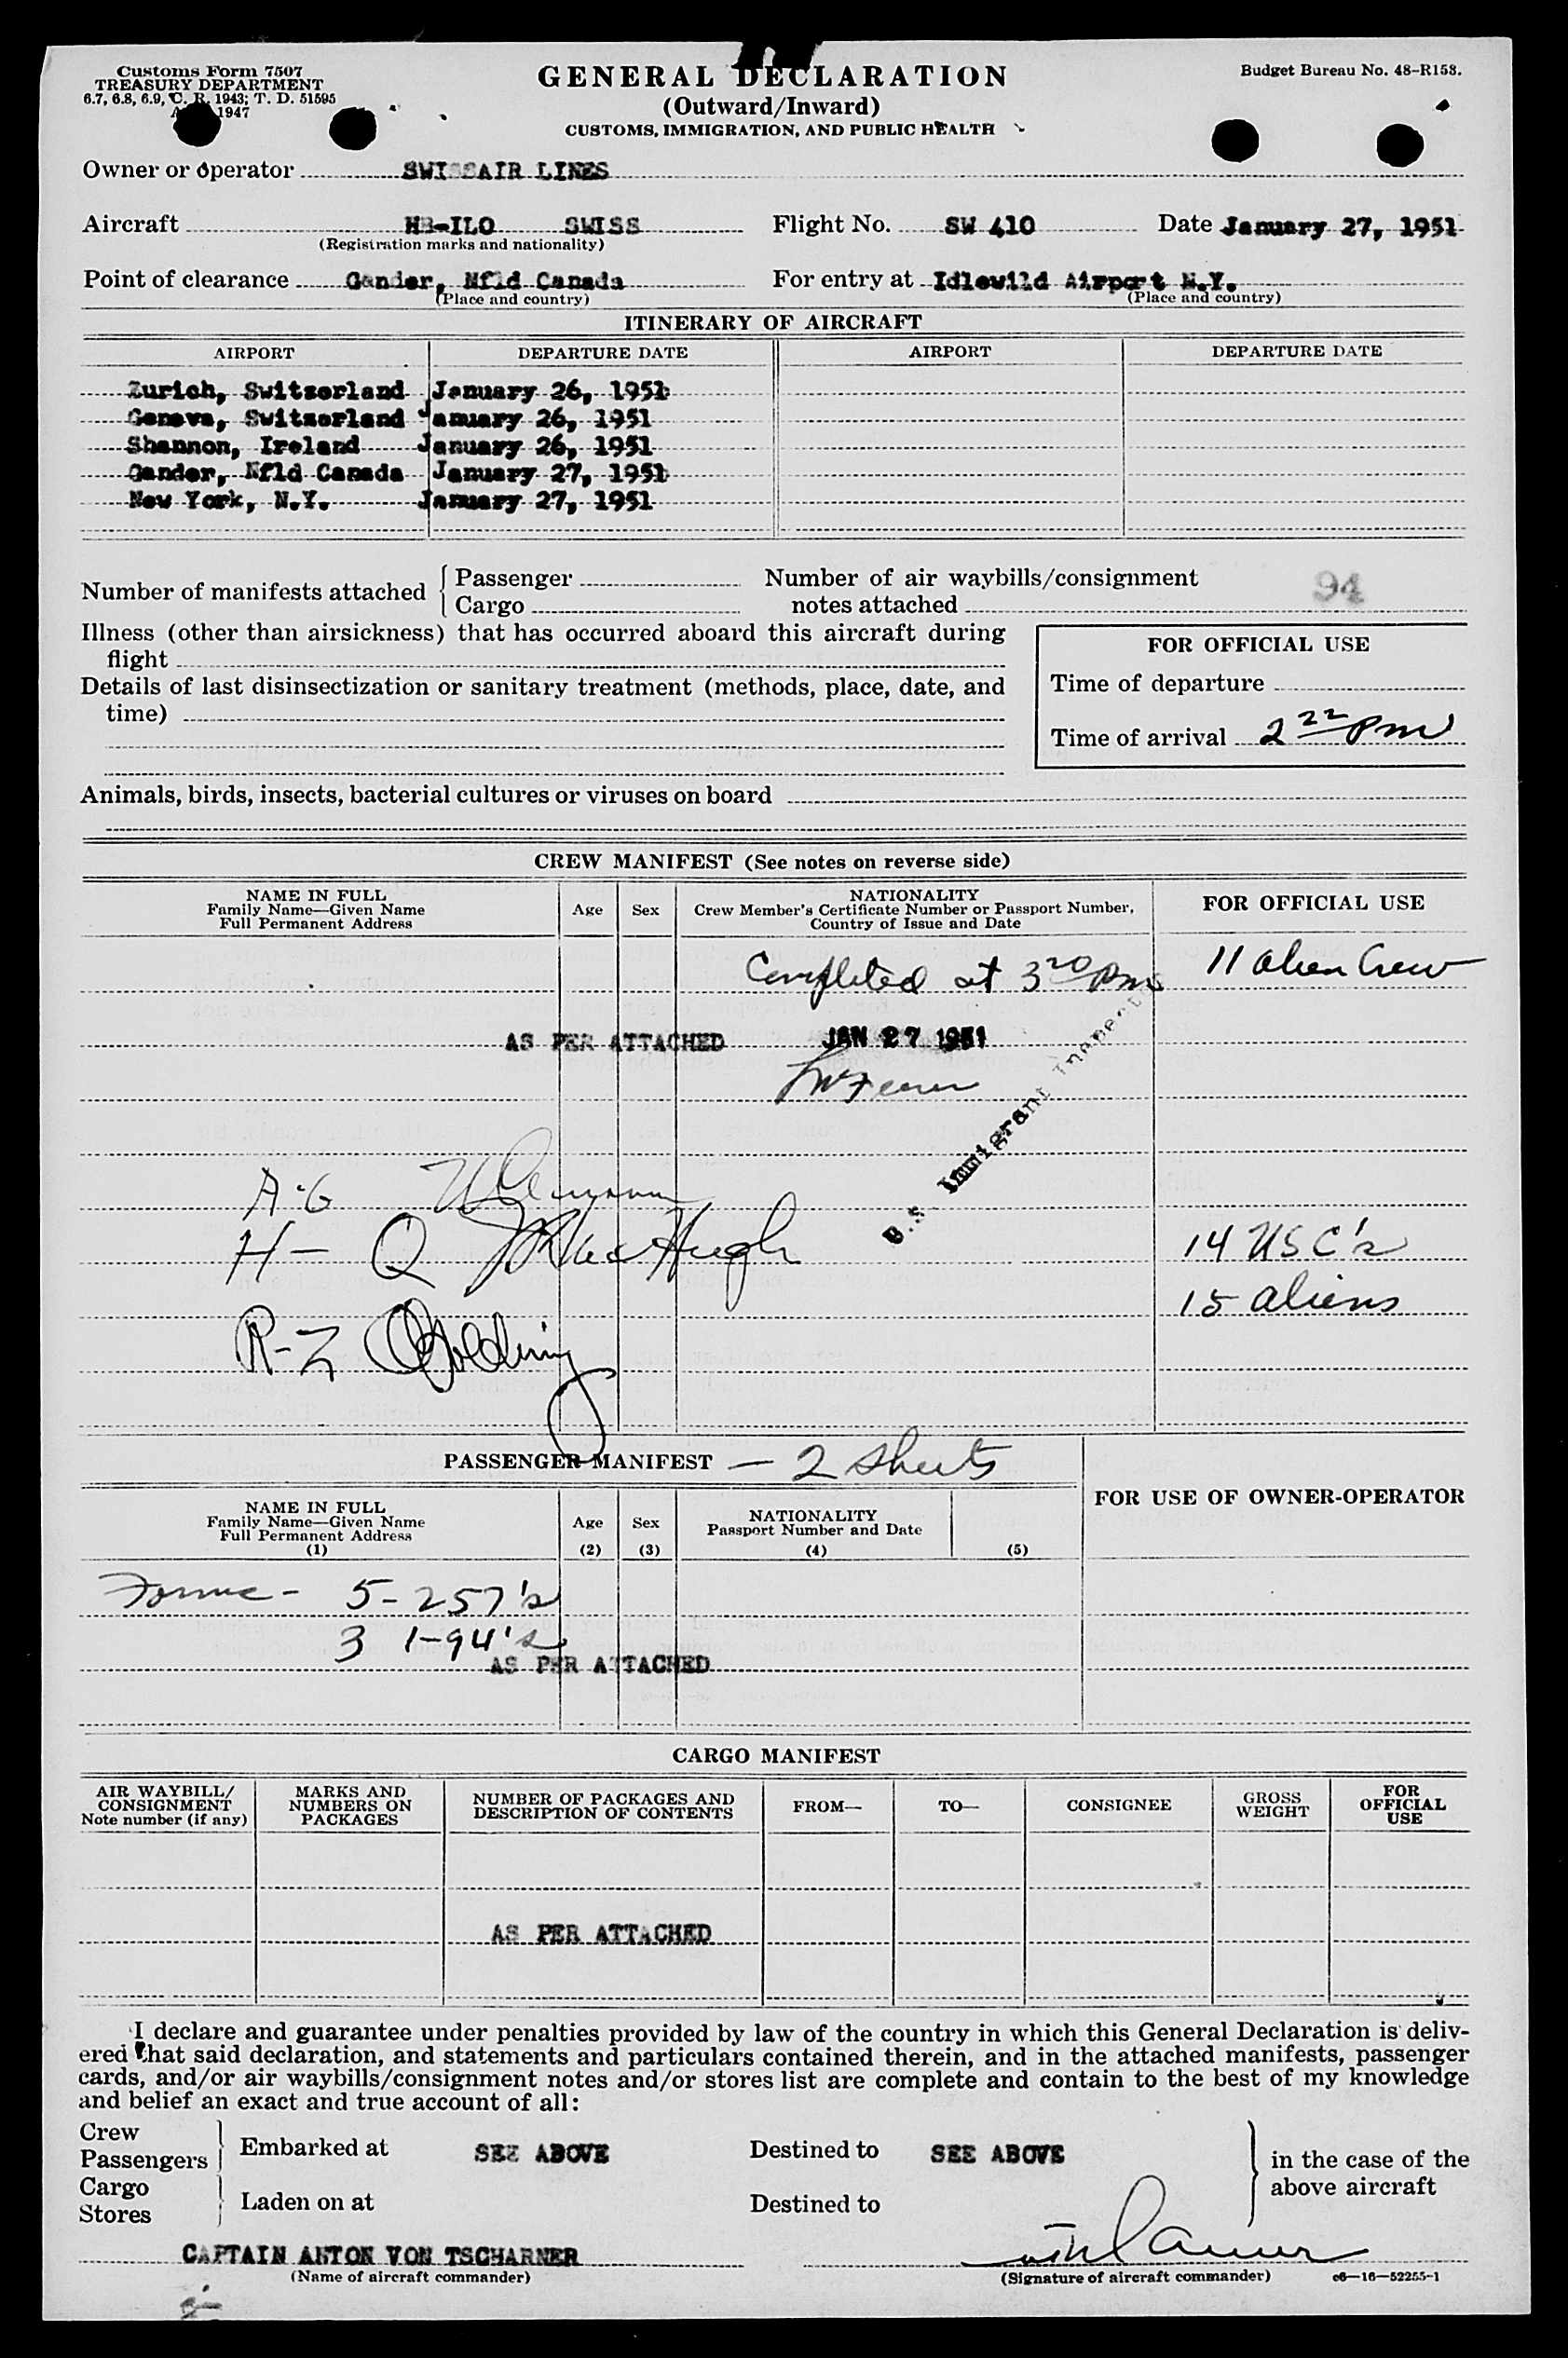 Customs Form 7507
TREASURY DEPARTMENT
6.7, 6.8, 6.9, C. R. 1943; T. D. 51595
1947
GENERAL DECLARATION
(Outward/Inward)
CUSTOMS, IMMIGRATION, AND PUBLIC HEALTH
Budget Bureau No. 48-R158.
Owner or operator SWISSAIR LINES
Aircraft HB-ILO SWISS Flight No. SW 410 Date January 27, 1951
(Registration marks and nationality)
Point of clearance Gander, Nfld Canada For entry at Idlewild Airport N.Y.
(Place and country) (Place and country)
ITINERARY OF AIRCRAFT
AIRPORT DEPARTURE DATE AIRPORT DEPARTURE DATE
Zurich, Switzerland January 26, 1951
Geneva, Switzerland January 26, 1951
Shannon, Ireland January 26, 1951
Gander, Nfld Canada January 27, 1951
New York, N.Y. January 27, 1951
Number of manifests attached { Passenger
Cargo
Number of air waybills/consignment
notes attached
94
Illness (other than airsickness) that has occurred aboard this aircraft during
flight
Details of last disinsectization or sanitary treatment (methods, place, date, and
time)
FOR OFFICIAL USE
Time of departure
Time of arrival 2 22 pm
Animals, birds, insects, bacterial cultures or viruses on board
CREW MANIFEST (See notes on reverse side)
NAME IN FULL
Family Name—Given Name
Full Permanent Address
Age Sex
NATIONALITY
Crew Member's Certificate Number or Passport Number,
Country of Issue and Date
FOR OFFICIAL USE
Completed at 3 20 pm 11 alien Crew
AS PER ATTACHED JAN 27 1951
U.S. Immigrant Inspector
A-G
H- Q MacHugh 14 USC's
15 aliens
R-Z Golding
PASSENGER MANIFEST — 2 sheets
NAME IN FULL
Family Name—Given Name
Full Permanent Address
(1)
Age
(2)
Sex
(3)
NATIONALITY
Passport Number and Date
(4) (5)
FOR USE OF OWNER-OPERATOR
Forms - 5-257's
3 1-94's
AS PER ATTACHED
CARGO MANIFEST
AIR WAYBILL/
CONSIGNMENT
Note number (if any)
MARKS AND
NUMBERS ON
PACKAGES
NUMBER OF PACKAGES AND
DESCRIPTION OF CONTENTS
FROM— TO— CONSIGNEE
GROSS
WEIGHT
FOR
OFFICIAL
USE
AS PER ATTACHED
I declare and guarantee under penalties provided by law of the country in which this General Declaration is deliv-
ered that said declaration, and statements and particulars contained therein, and in the attached manifests, passenger
cards, and/or air waybills/consignment notes and/or stores list are complete and contain to the best of my knowledge
and belief an exact and true account of all:
Crew
Passengers } Embarked at SEE ABOVE Destined to SEE ABOVE
Cargo
Stores } Laden on at Destined to
} in the case of the
above aircraft
CAPTAIN ANTON VON TSCHARNER
(Name of aircraft commander) (Signature of aircraft commander) c6—16—52255-1